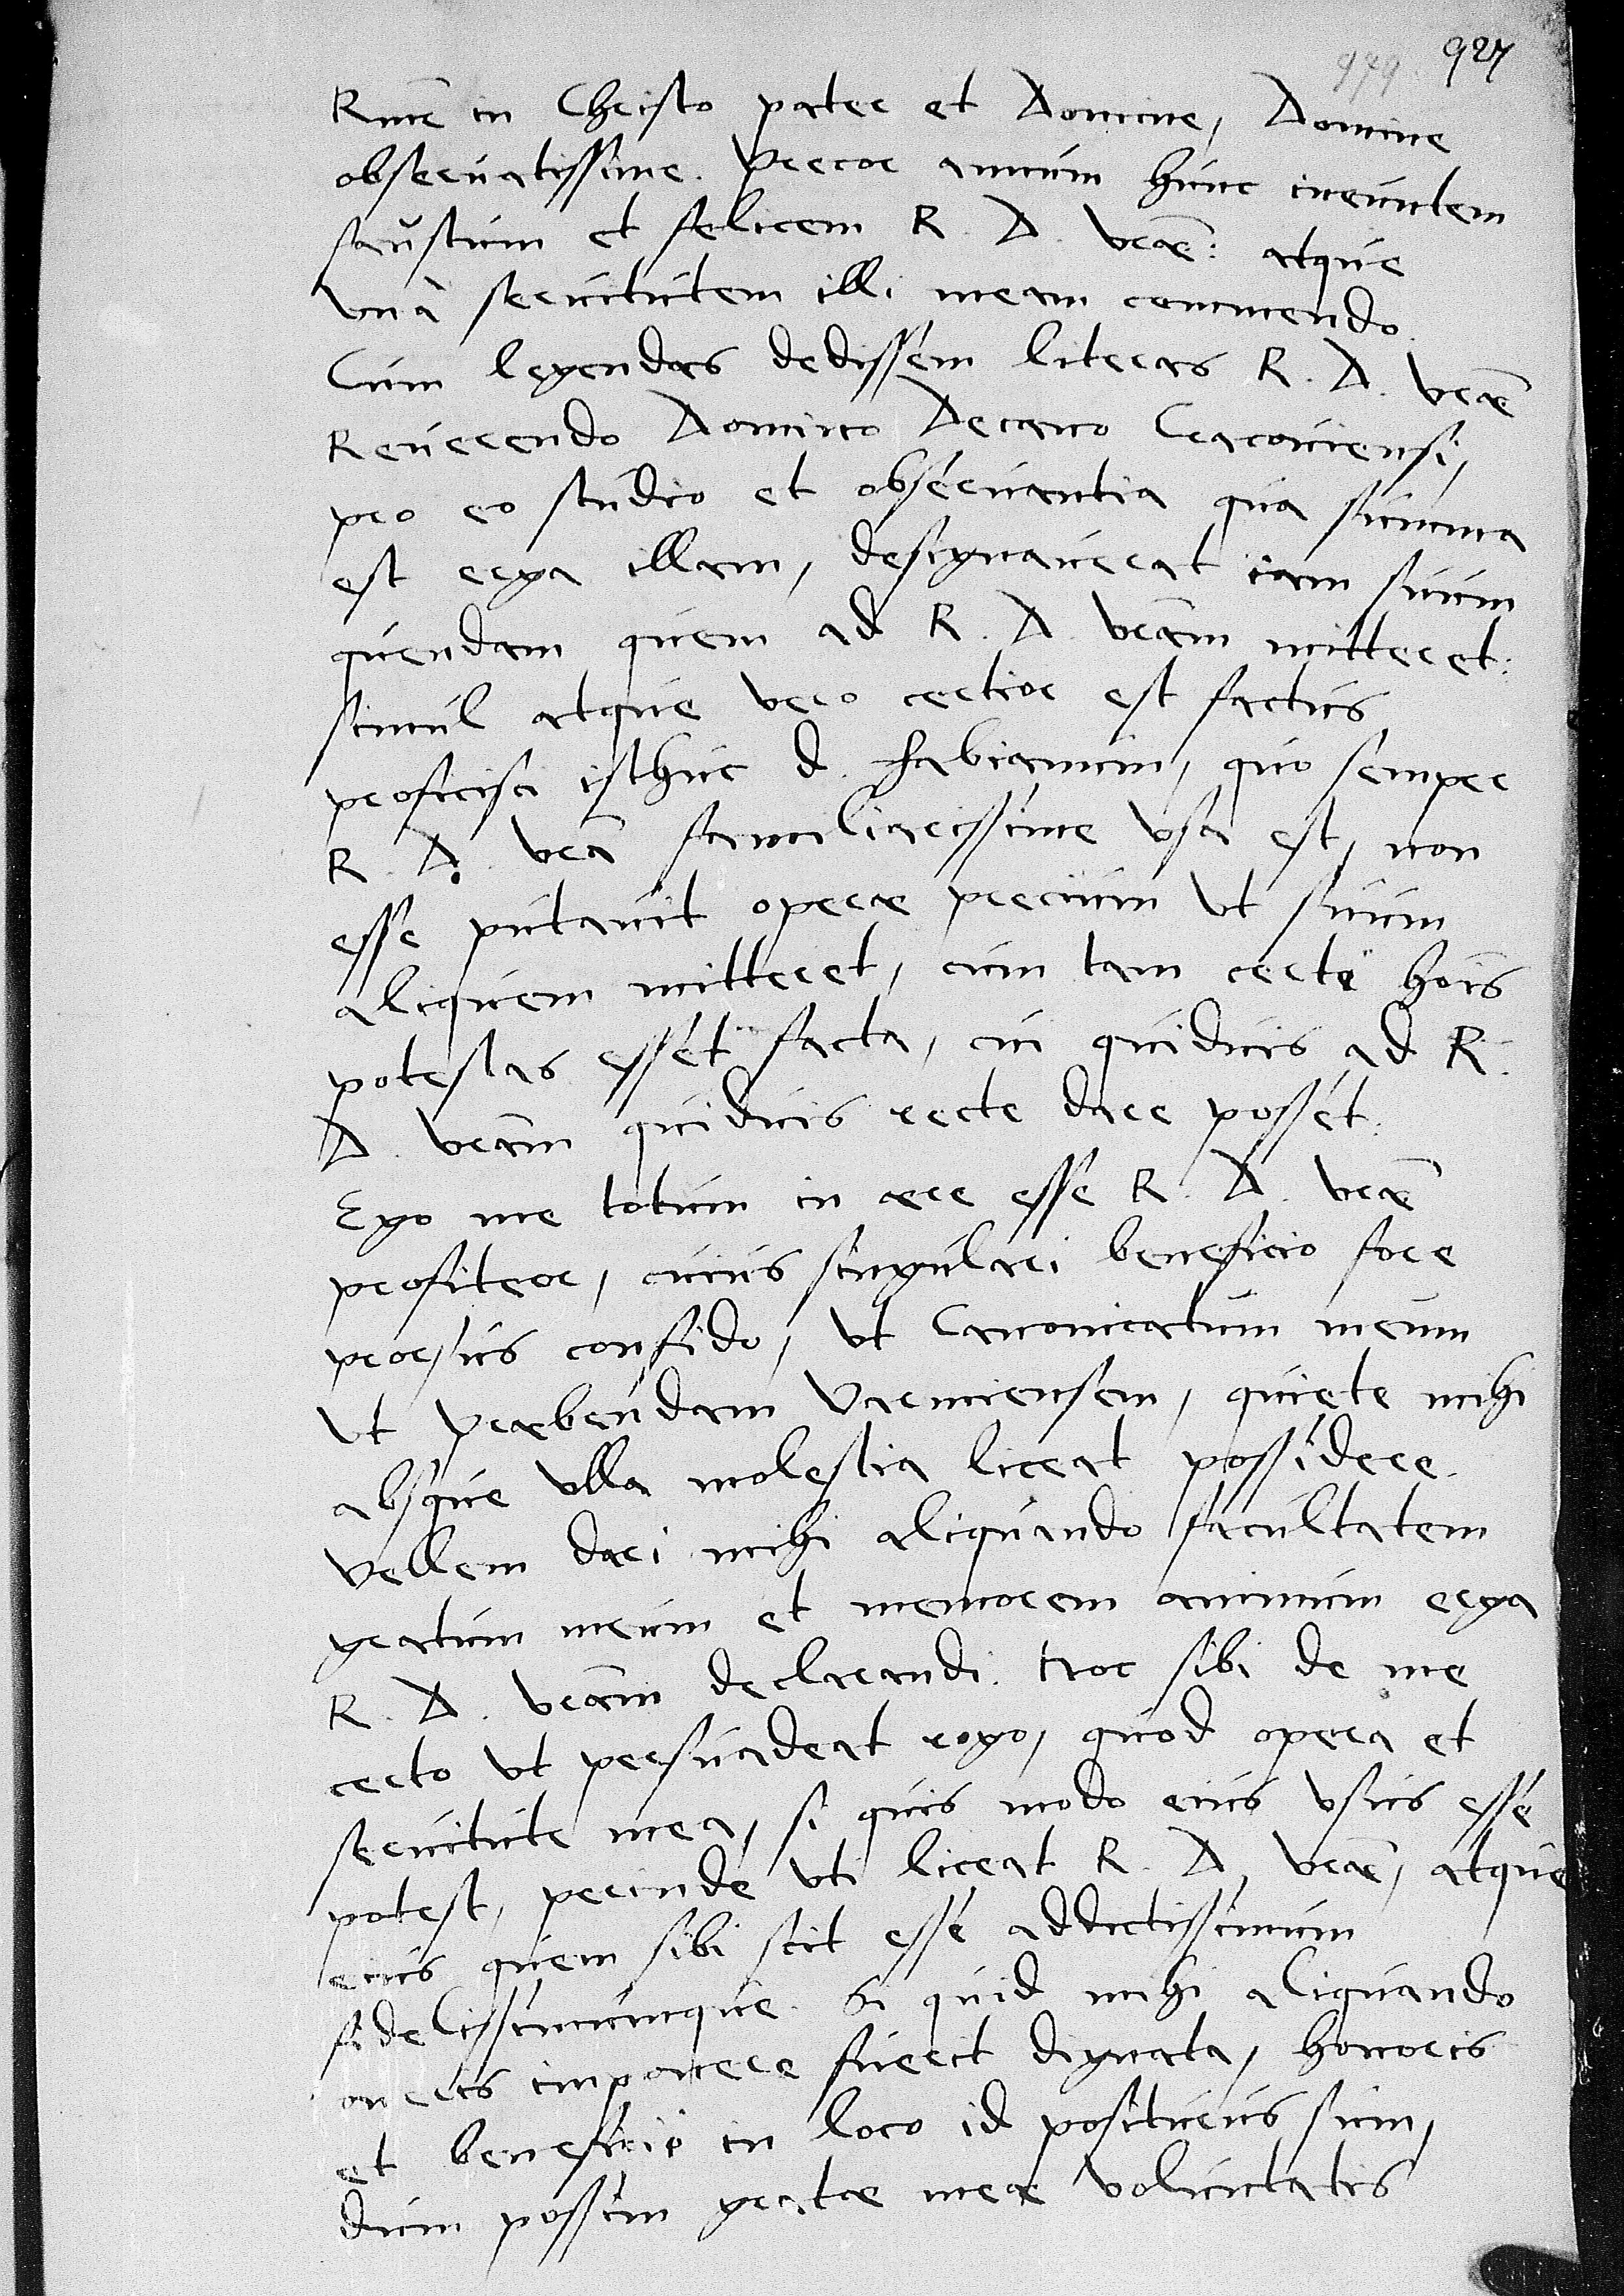 979. 927
Rme in Christo pater et Domine, Domine
obseruatissime. Precor annum hunc ineuntem
faustum et felicem R. D. vrae: atque
vnà seruitutem illi meam commendo.
Cum legendas dedissem literas R. D. vrae
Reuerendo Domino Decano Cracouiensi,
pro eo studio et obseruantia qua summa
est erga illam, designauerat iam suum
quendam quem ad R. D. vram mitteret:
simul atque vero certior est factus
proficisci isthuc d. Fabianum, quo semper
R. D. vra familiarissime vsa est, non
esse putauit operae precium vt suum
aliquem mitteret, cum tam certi hois
potestas esset facta, cui quiduis ad R.
D. vram quiduis recte dare posset.
Ego me totum in aere esse R. D. vrae
profiteor, cuius singulari beneficio fore
prorsus confido, vt Canonicatum meum
vt Praebendam Varmiensem, quiete mihi
absque vlla molestia liceat possidere.
Vellem dari mihi aliquando facultatem
gratum meum et memorem animum erga
R. D. vram declarandi. Hoc sibi de me
certo vt persuadeat rogo, quod opera et
seruitute mea, si quis modo eius vsus esse
potest, perinde vti liceat R. D. vrae, atque
eius quem sibi scit esse addictissimum
fidelissimumque. Si quid mihi aliquando
oneris imponere fuerit dignata, honoris
et beneficii in loco id positurus sum,
dum possim gratae meae voluntatis